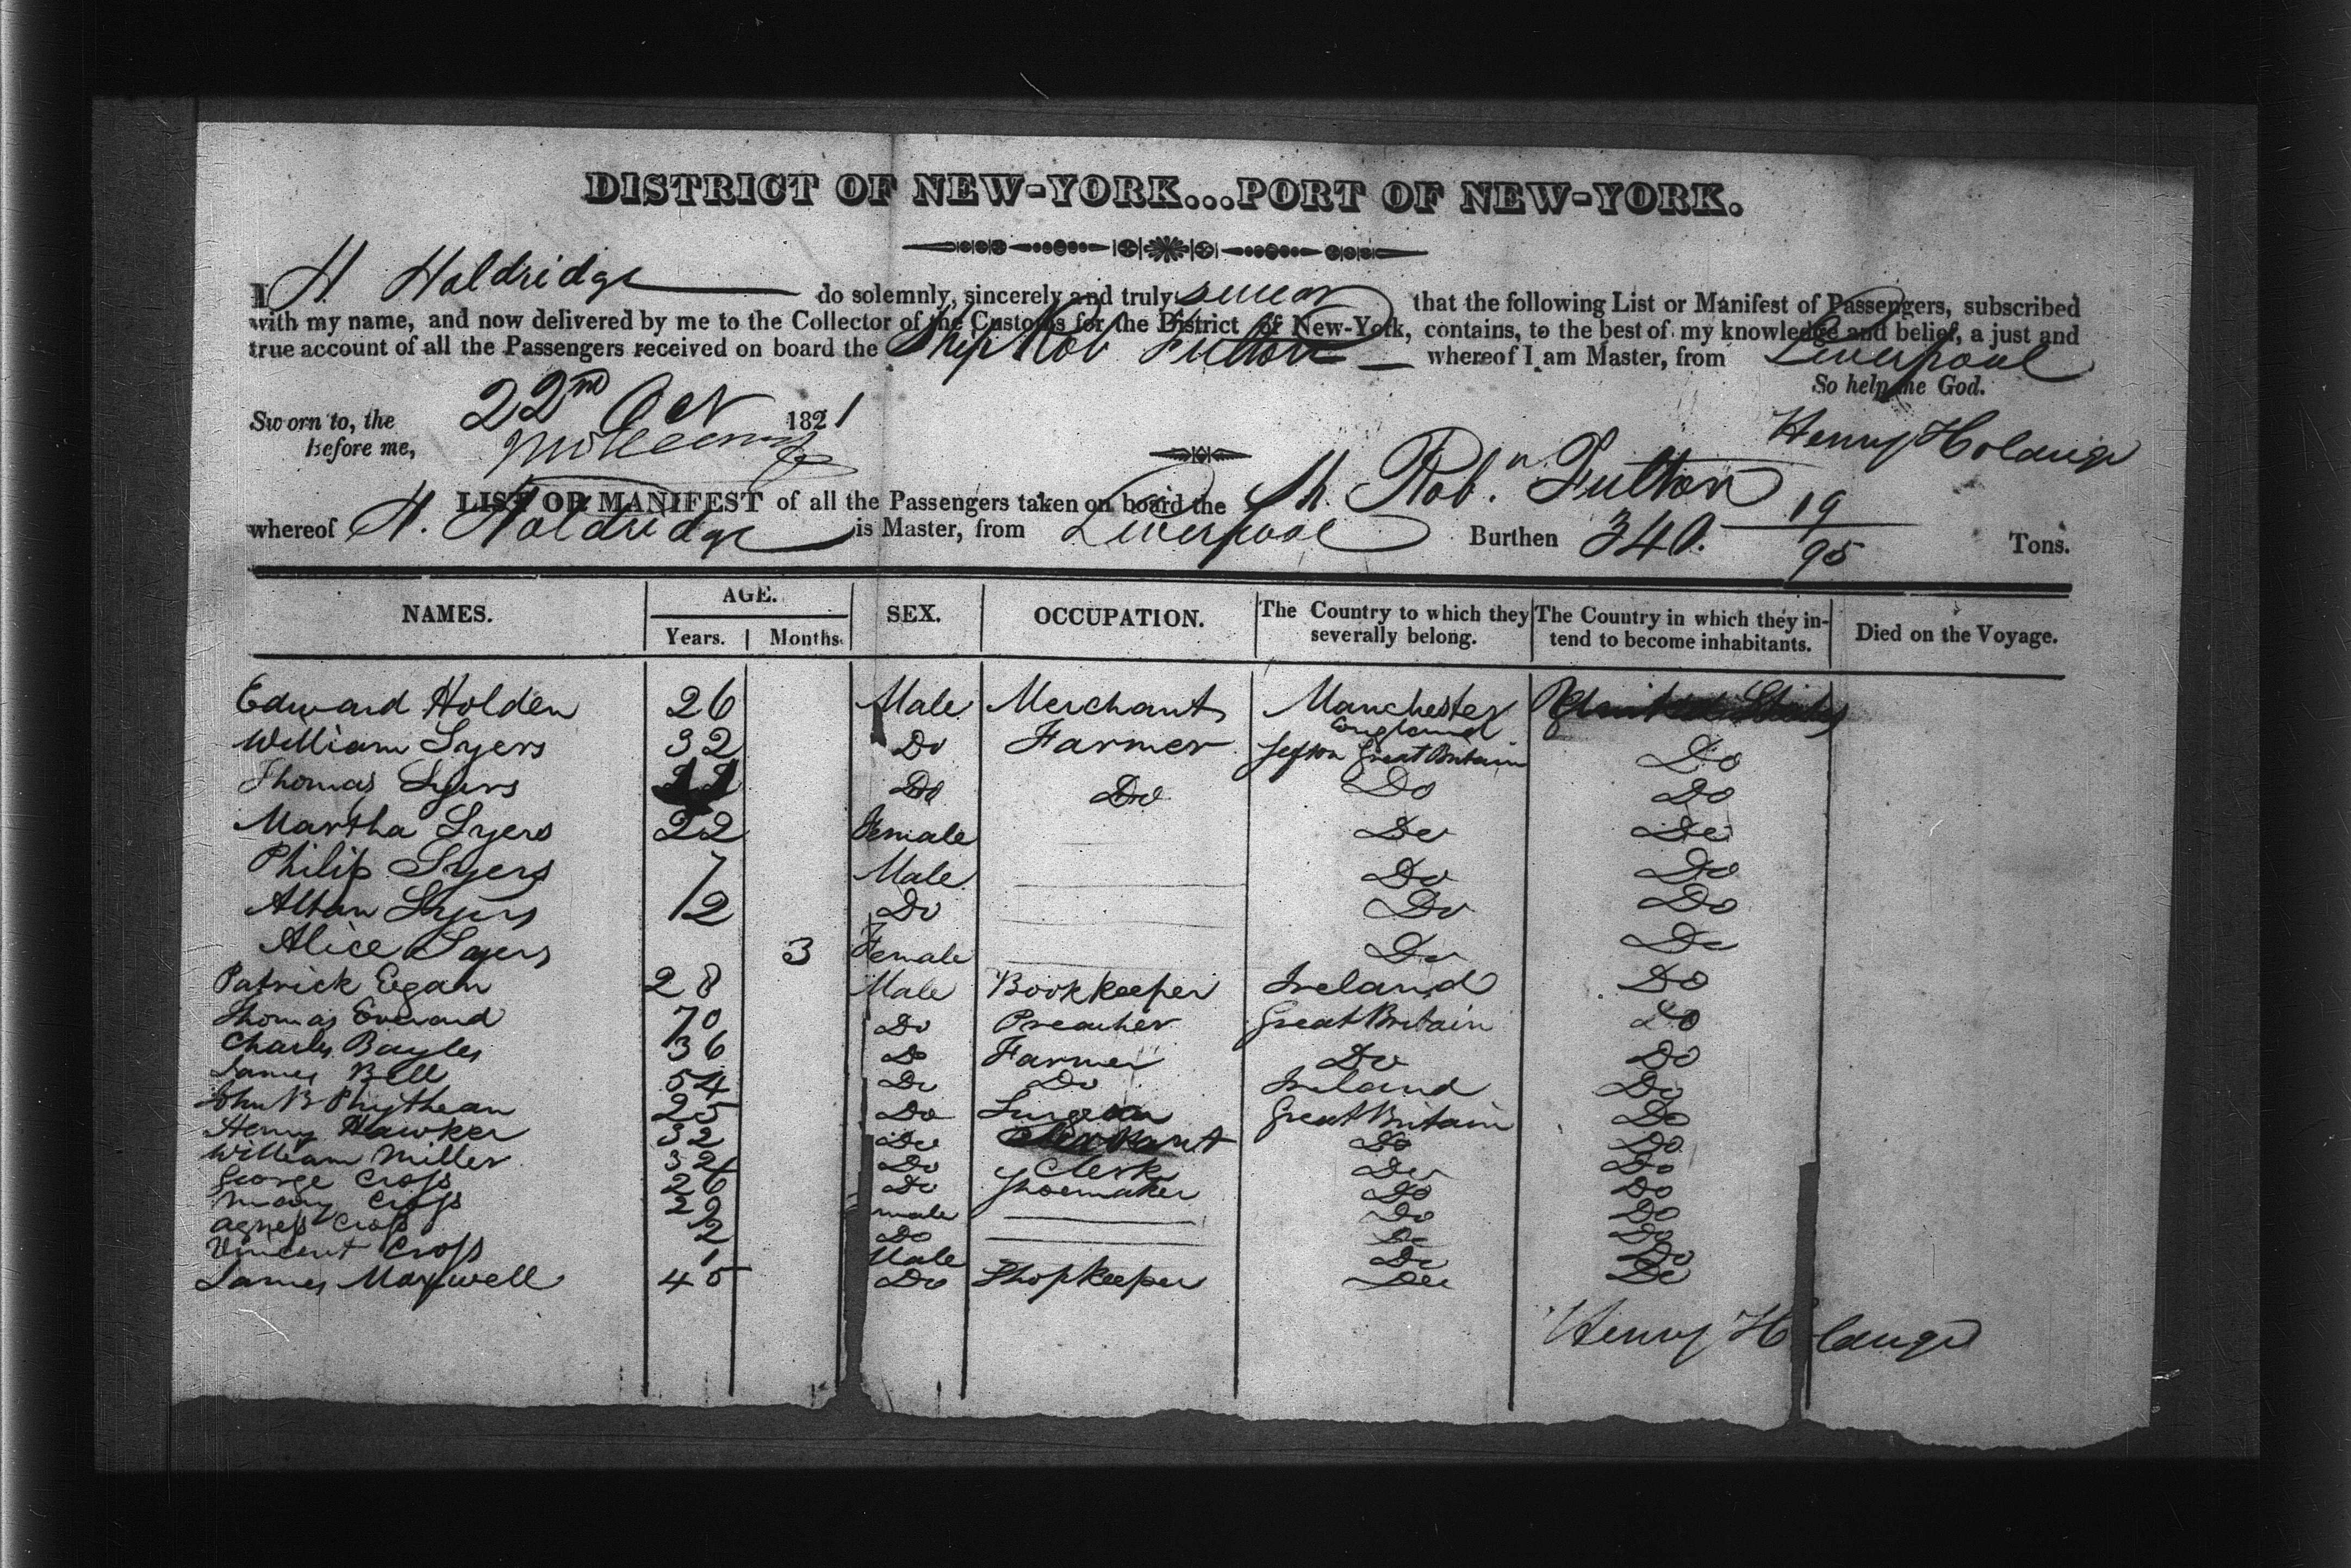 DISTRICT OF NEW-YORK...PORT OF NEW-YORK.
I H Holdridge do solemnly, sincerely and truly swear that the following List or Manifest of Passengers, subscribed
with my name, and now delivered by me to the Collector of the Customs for the District of New-York, contains, to the best of my knowledge and belief, a just and
true account of all the Passengers received on board the Ship Rob Fulton whereof I am Master, from Liverpool
So help me God.
Sworn to, the 22nd Oct 1821
Before me,
Henry Holdridge
LIST OR MANIFEST of all the Passengers taken on board the Sh Robt Fulton
whereof H. Holdridge is Master, from Liverpool Burthen 340. 19/95 Tons.
NAMES. AGE. Years. Months. SEX. OCCUPATION. The Country to which they severally belong. The Country in which they intend to become inhabitants. Died on the Voyage.
Edward Holden 26 Male Merchant Manchester England United States
William Syers 32 Do Farmer Great Britain Do
Thomas Syers Do Do Do Do
Martha Syers 22 Female Do Do
Philip Syers 7 Male Do Do
Alban Syers 2 Do Do Do
Alice Syers 3 Female Do Do
Patrick Egan 28 Male Bookkeeper Ireland Do
Thomas Everard 70 Do Preacher Great Britain Do
Charles Bayles 36 Do Farmer Do Do
James Bell 54 Do Do Ireland Do
John B Phythean 25 Do Surgeon Great Britain Do
Henry Hawker 32 Do Do Do
William Miller 32 Do Clerk Do Do
George Cross 26 Do Shoemaker Do Do
Mary Cross 22 male Do Do
Agness Cross 2 Do Do Do
Vincent Cross 1 Male Do Do
James Maxwell 45 Do Shopkeeper Do Do
Henry Holdridge